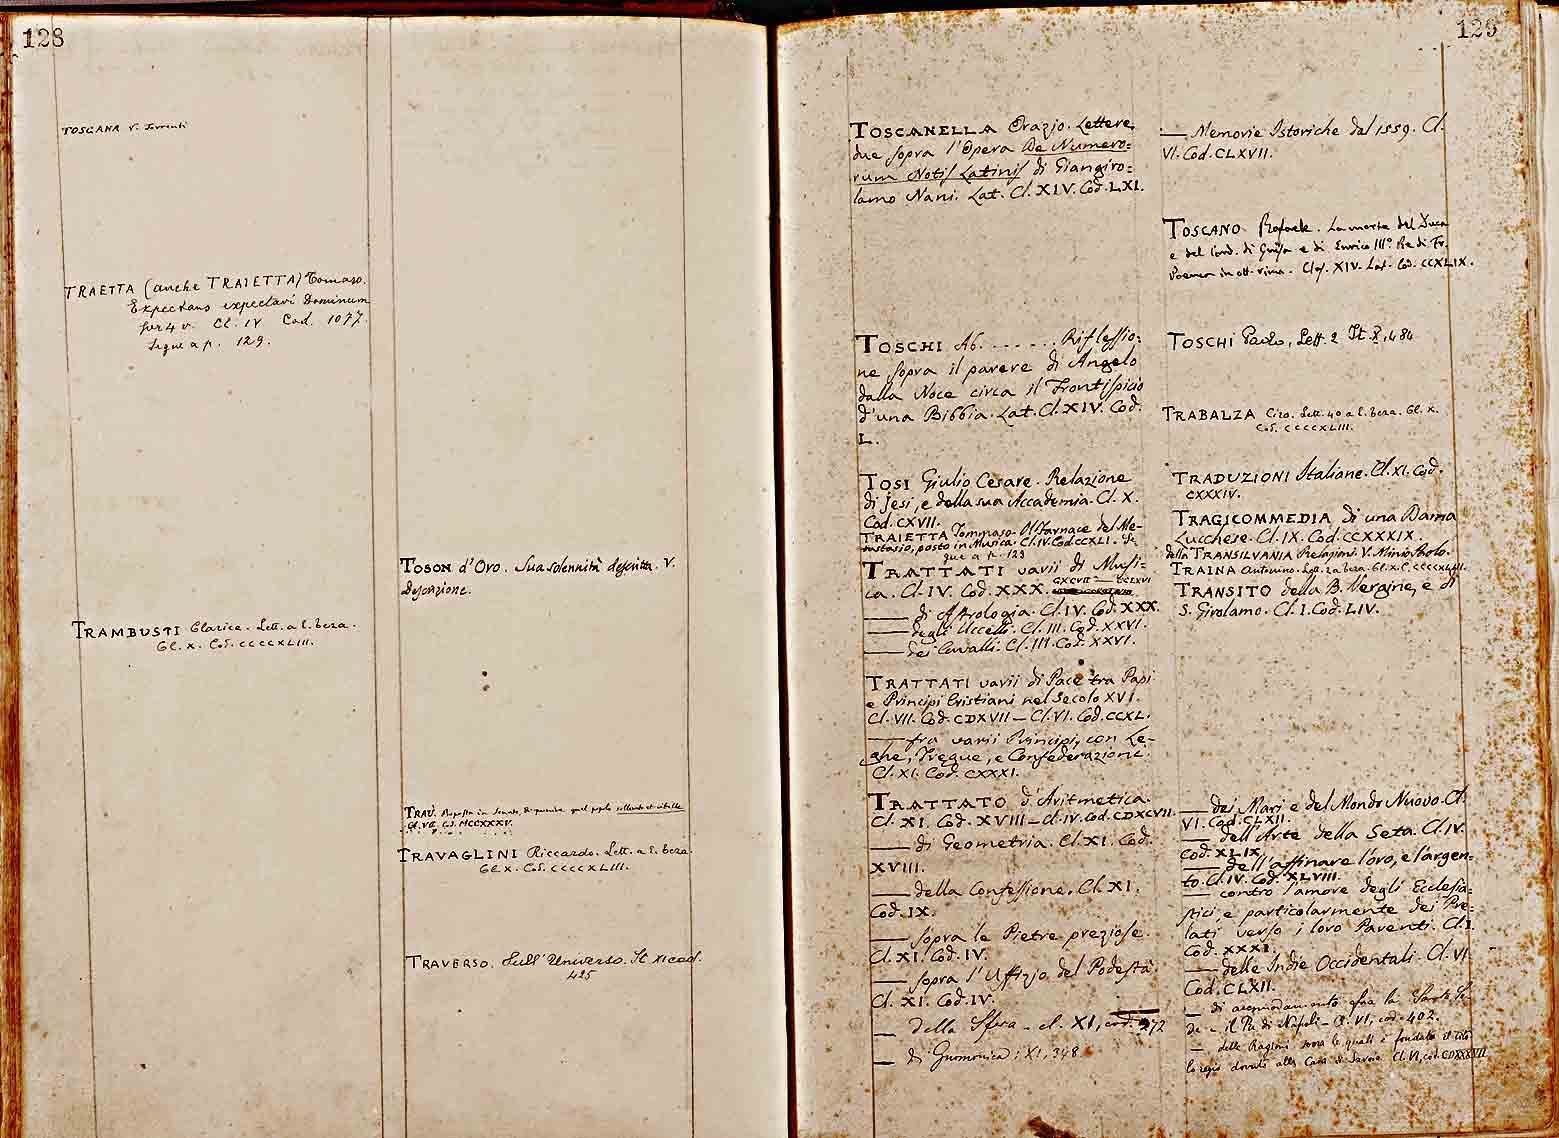 128
TOSCANA v. Torrenti
TRAETTA (anche TRAIETTA) Tomaso.
Expectans expectavi Dominum
per 4 v. Cl. IV Cod. 1077.
Segue a p. 129.
TRAMBUSTI Clarice. Lett. a E. Teza.
Cl. X. Cod. CCCCXLIII.
TOSON d'Oro. Sua solennità descritta. V.
Descrizione.
TRAÙ. Risposta in Senato,
Cl. VII. Cod. MCCXXXV.
TRAVAGLINI Riccardo. Lett. a E. Teza.
Cl. X. Cod. CCCCXLIII.
TRAVERSO. Sull'Universo. It. XI cod.
425
129
TOSCANELLA Orazio. Lettere
due sopra l'Opera De Numero=
rum Notis Latinis di Giangiro=
lamo Nani. Lat. Cl. XIV. Cod. LXI.
TOSCHI Ab. . . . . . . Riflessio=
ne sopra il parere di Angelo
dalla Noce circa il Frontispicio
d'una Bibbia. Lat. Cl. XIV. Cod.
L.
TOSI Giulio Cesare. Relazione
di Jesi, e della sua Accademia. Cl. X.
Cod. CXVII.
TRAIETTA Tommaso. Il Farnace del Me-
tastasio, posto in Musica. Cl. IV. Cod. CCXLI. Se
gue a p. 128
TRATTATI varii di Musi=
ca. Cl. IV. Cod. XXX. CXCVII — CCLXVI
—— di Astrologia. Cl. IV. Cod. XXX.
—— degli Uccelli. Cl. III. Cod. XXVI.
—— dei Cavalli. Cl. III. Cod. XXVI.
TRATTATI varii di Pace tra Papi
e Principi Cristiani nel Secolo XVI.
Cl. VII. Cod. CDXVII — Cl. VI. Cod. CCXL.
—— fra varii Principi, con Le-
ghe, Tregue, e Confederazioni.
Cl. XI. Cod. CXXXI.
TRATTATO d'Aritmetica.
Cl. XI. Cod. XVIII — Cl. IV. Cod. CDXCVII.
—— di Geometria. Cl. XI. Cod.
XVIII.
—— della Confessione. Cl. XI.
Cod. IX.
—— sopra le Pietre preziose.
Cl. XI. Cod. IV.
—— sopra l'Uffizio del Podestà.
Cl. XI. Cod. IV.
— della Sfera — cl. XI, cod. 272
— di Gnomonica; XI, 348
—— Memorie Istoriche dal 1559. Cl.
VI. Cod. CLXVII.
TOSCANO Rafaele. La morte del Duca
e del Card. di Guisa e di Enrico III.º Re di Fr.
Poema in ott. rima. Clas. XIV. Lat. Cod. CCXLIX.
TOSCHI Paolo, Lett. 2 It. X, 484
TRABALZA Ciro. Lett. 40 a E. Teza. Cl. X.
Cod. CCCCXLIII.
TRADUZIONI Italiane. Cl. XI. Cod.
CXXXIV.
TRAGICOMMEDIA di una Dama
Lucchese. Cl. IX. Cod. CCXXXIX.
della TRANSILVANIA Relazioni. V. Minio Paolo.
TRAINA Antonino. Lett. 2 a Teza. Cl. X. C. CCCCXLIII.
TRANSITO della B. Vergine, e di
S. Girolamo. Cl. I. Cod. LIV.
—— dei Mari e del Mondo Nuovo. Cl.
VI. Cod. CLXII.
—— dell'Arte della Seta. Cl. IV.
Cod. XLIX.
—— dell'affinare l'oro, e l'argen=
to. Cl. IV. Cod. XLVIII.
—— contro l'amore degli Ecclesia=
stici, e particolarmente dei Pre=
lati verso i loro Parenti. Cl. I.
Cod. XXXI.
—— delle Indie Occidentali. Cl. VI.
Cod. CLXII.
— di accomodamento fra la Santa Se-
de — il Re di Napoli — Cl. VI, cod. 402.
— delle Ragioni sopra le quali è fondato il tito
lo regio dovuto alla Casa di Savoia. Cl. VI, cod. CDXXXVII